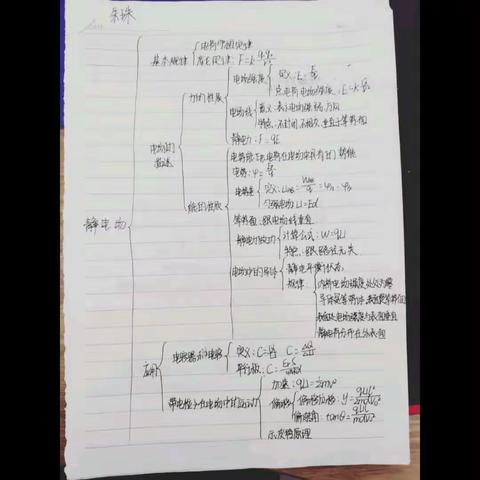 朱珠
基本规律
电荷守恒定律
库仑定律: F=k
静电场
电场的描述
力的性质
电场强度
定义: E=F/q
点电荷电场强度: E=k
电场线
意义: 表示电场强弱, 方向
特点: 不封闭, 不相交, 垂直于等势面
静电力: F=qE
能的性质
电势能: 电荷在电场中具有的势能
电势: φ=
电势差
定义: UAB=WAB/q=φA-φB
匀强电场 U=Ed
等势面: 跟电场线垂直
静电力做功
计算公式: W=qU
特点: 跟路径无关
电场中的导体
静电平衡状态
规律
内部电场强度处处为零
导体是等势体, 表面是等势面
表面处电场强度与表面垂直
静电荷分布在外表面
应用
电容器和电容
定义: C=Q/U C=ΔQ/ΔU
平行板: C=εrS/4πkd
带电粒子在电场中的运动
加速: qU=½mv²
偏转
偏移位移: y=qUl²/2mdv0²
偏转角: tanθ=qUl/mdv0²
示波管原理